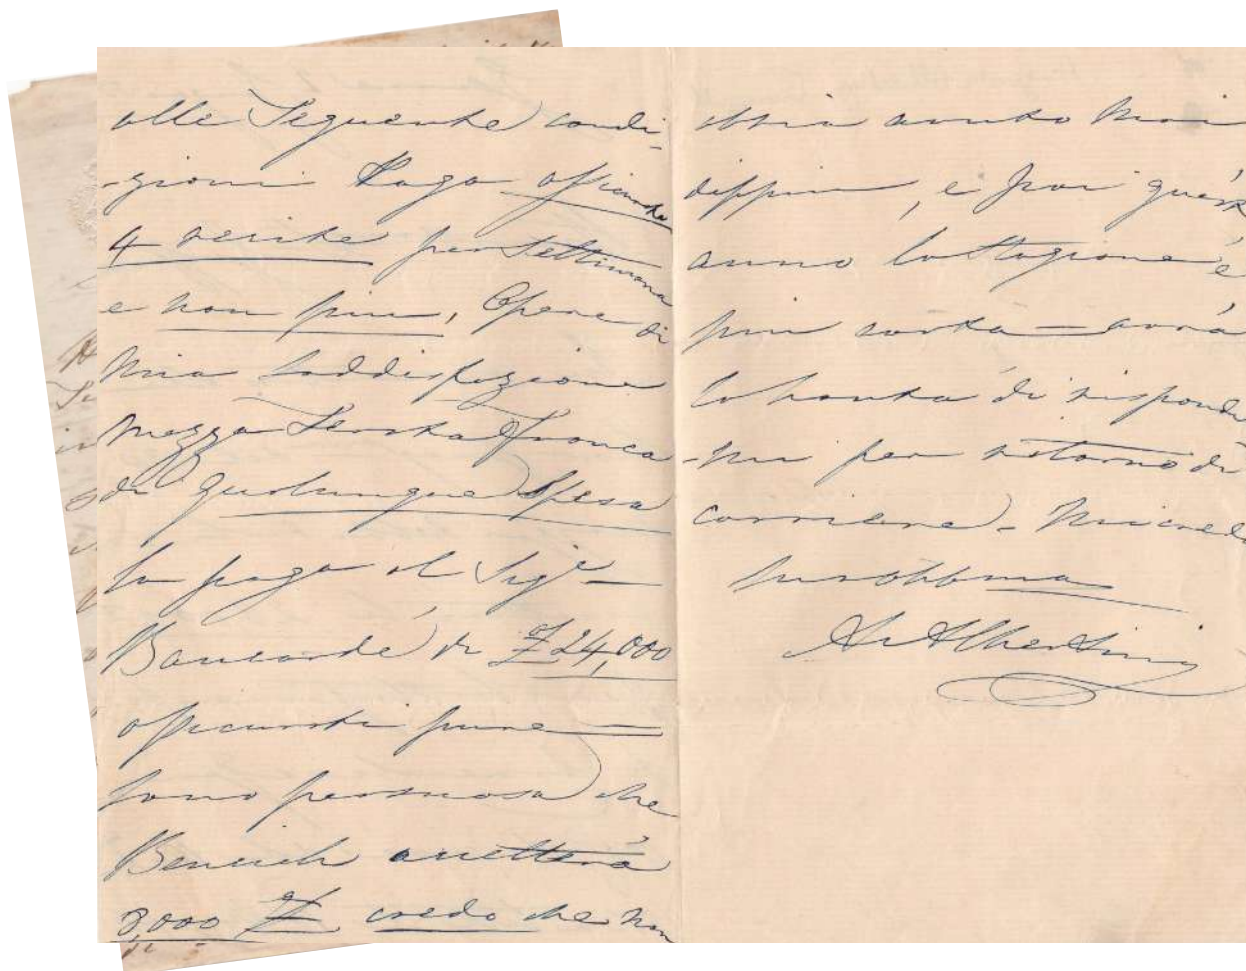 alle Seguente condi-
-zioni Paga assicurata
4 recite per Settimana
e non più, Opere di
mia Soddisfazione
mezza Serata franca
di qualunque Spesa
la paga al Sigre
Baucardé di £ 24,000
assicurati pure
sono persuasa che
accetterà
8,000 £ credo che non
abbia avuto mai
dippiù, e poi quest
anno la Stagione è
più corta — avrà
la bontà di risponder
-mi per ritorno di
corriere - mi creda
Sua obbma
A Albertini